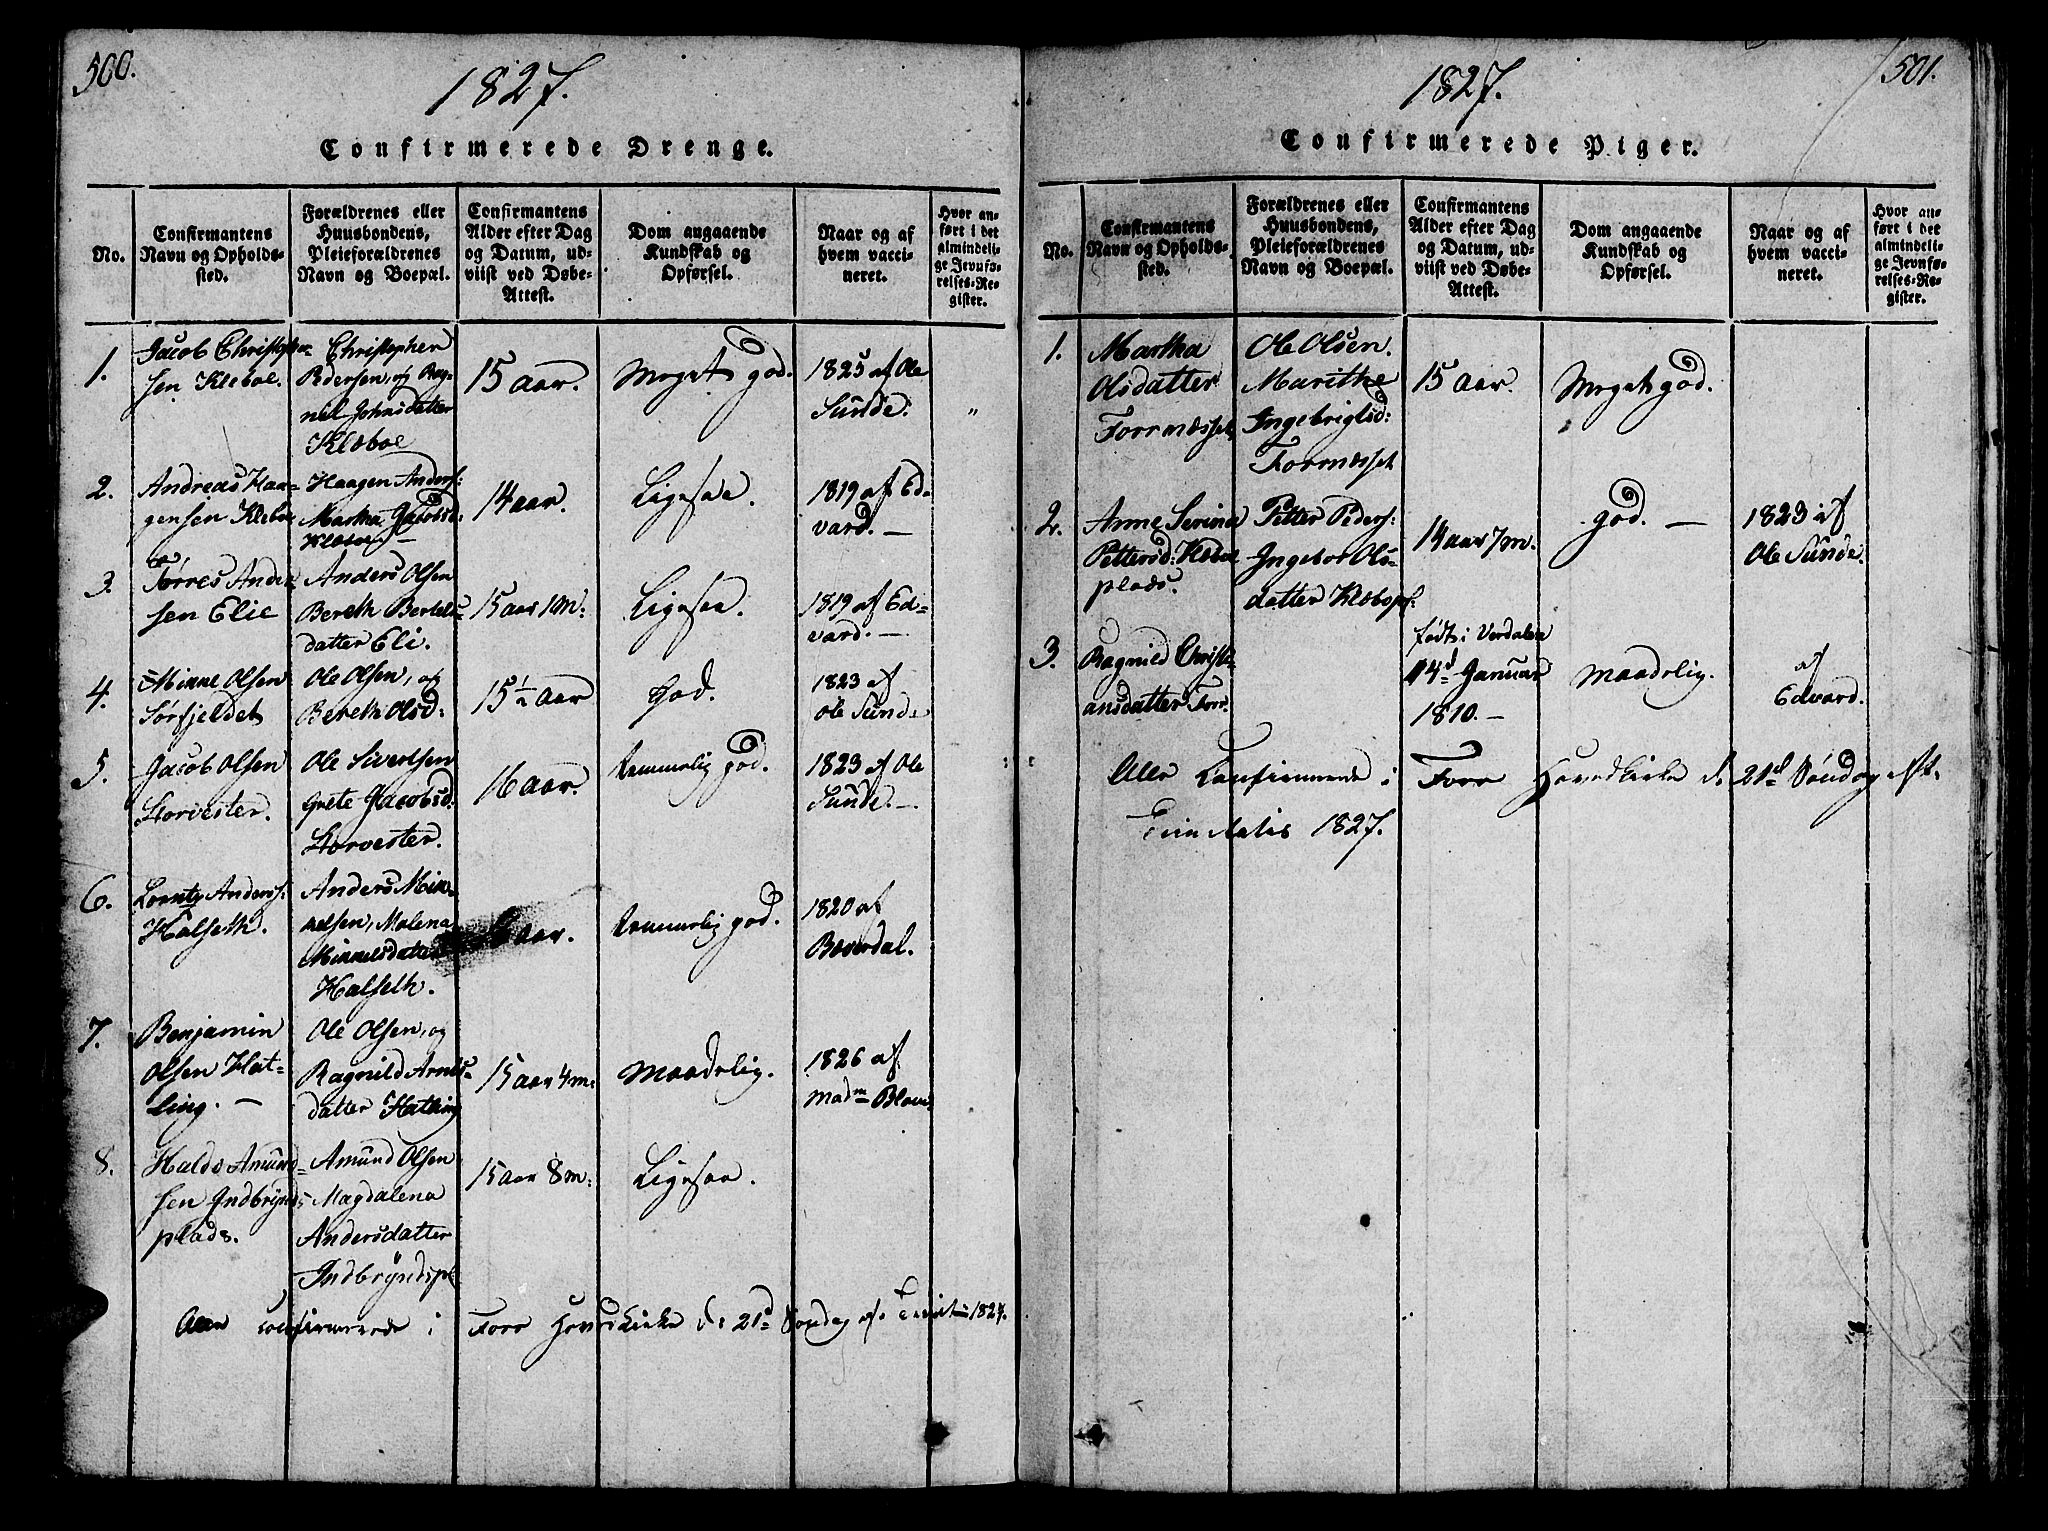 500.
1827.
Confirmerede Drenge.
No.
Confirmantens
Navn og Opholds-
sted.
Forældrenes eller
Huusbondens,
Pleieforældrenes
Navn og Boepæl.
Confirmantens
Alder efter Dag
og Datum, ud-
viist ved Døbe-
Attest.
Dom angaaende
Kundskab og
Opførsel.
Naar og af
hvem vacci-
neret.
Hvor an-
ført i det
almindeli-
ge Jevnfø-
relses-Re-
gister.
1.
Jacob Christopher-
sen Kleboe.
Christopher
Pedersen, og Rag-
nil Johnsdatter
Kleboe
15 aar.
Meget god.
1825 af Ole
Sunde.
"
2.
Andreas Haa-
gensen Kleboe
Haagen Anders:
Martha Jacobsd:
14 aar.
Ligesaa.
1819 af Ed-
vard. —
3.
Tørres Ander-
sen Elie
Anders Olsen
Bereth Bertels-
datter Eli.
15 aar 1 m:
Ligesaa.
1819 af Ed-
vard. —
4.
Minne Olsen
Sørfjeldet
Ole Olsen, og
Bereth Olsd:
15½ aar
God.
1823 af
Ole Sunde
5.
Jacob Olsen
Storvester.
Ole Sivertsen
Grete Jacobsd:
Storvester.
16 aar.
temmelig god.
1823 af Ole
Sunde. —
6.
Lorntz Anders:
Halseth.
Anders Mik-
kelsen, Malena
Mikkelsdatter
Halseth.
aar.
temmelig god.
1820 af
Bæverdal.
7.
Benjamin
Olsen Hat-
ling. —
Ole Olsen, og
Ragnild Arnts-
datter Hatling
15 aar 4 m:
Maadelig.
1826 af
Madm
8.
Haldo Amund-
sen Indbrynds-
plads.
Amund Olsen
Magdalena
Andersdatter
Indbryndspl
15 aar 8 m:
Ligesaa.
Alle confirmerede i Forr Hovedkirke d: 21d Søndag eft: Trinit — 1827.
501.
1827.
Confirmerede Piger.
No.
Confirmantens
Navn og Opholds-
sted.
Forældrenes eller
Huusbondens,
Pleieforældrenes
Navn og Boepæl.
Confirmantens
Alder efter Dag
og Datum, ud-
viist ved Døbe-
Attest.
Dom angaaende
Kundskab og
Opførsel.
Naar og af
hvem vacci-
neret.
Hvor an-
ført i det
almindeli-
ge Jevnfø-
relses-Re-
gister.
1.
Martha
Olsdatter
Forrnæsset
Ole Olsen.
Marithe
Ingebrigtsd:
Forrnæsset
15 aar.
Meget god.
2.
Anne Serina
Pettersd: Kleboe
plads.
Petter Peders:
Ingebor Ols-
datter
14 aar 7 m.
god. —
1823 af
Ole Sunde.
3.
Ragnild Christi-
ansdatter Forr.
født i Verdalen
14d Januar
1810. —
Maadelig.
af
Edvard.
Alle Confirmerede i Forr Hovedkirke d: 21d Søndag eft.
Trinitatis 1827.